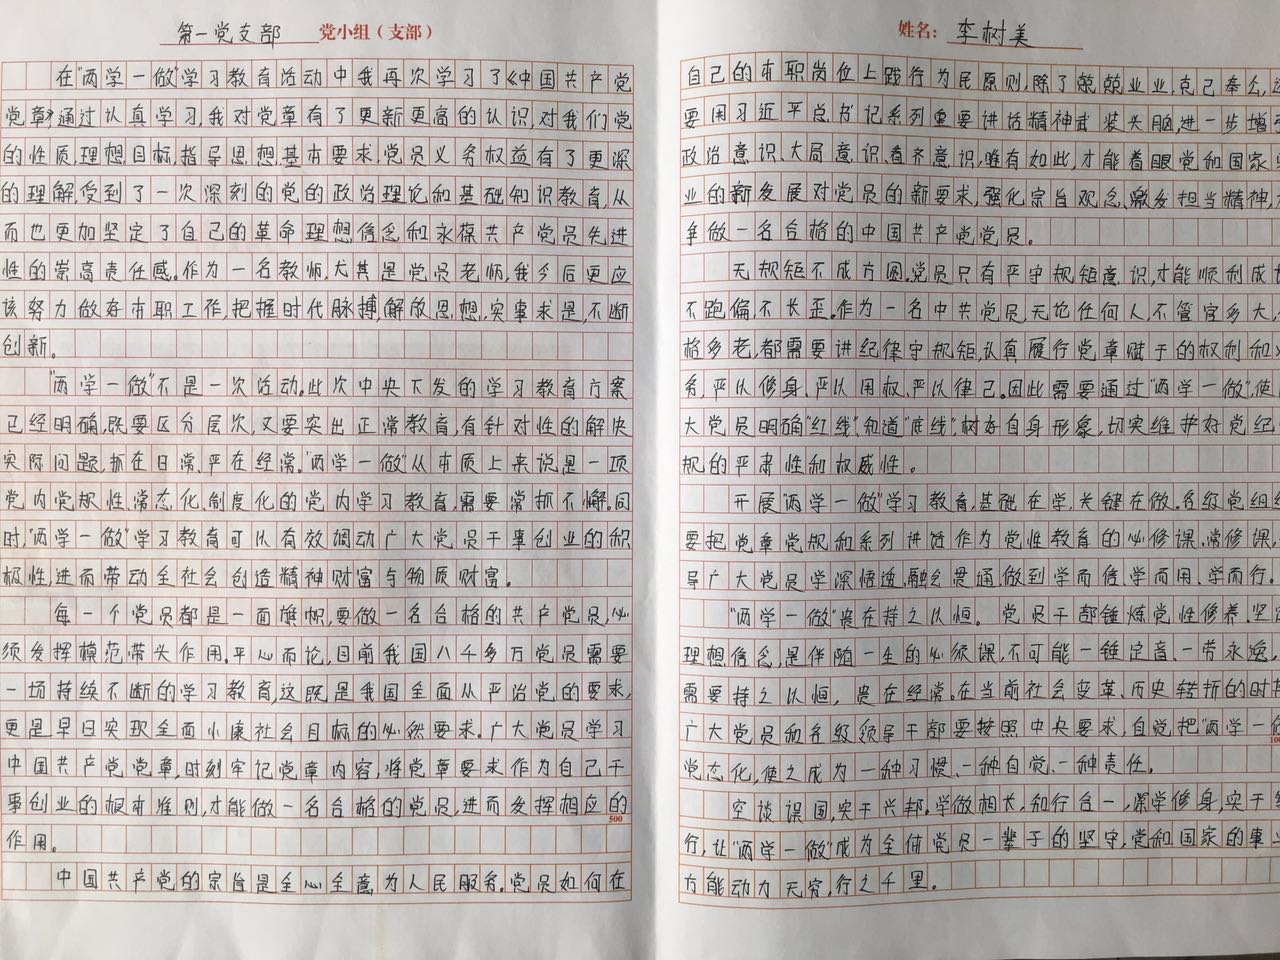 第一党支部 党小组（支部）
在"两学一做"学习教育活动中我再次学习了《中国共产党
党章》通过认真学习,我对党章有了更新更高的认识,对我们党
的性质,理想目标,指导思想,基本要求,党员义务权益有了更深
的理解,受到了一次深刻的党的政治理论和基础知识教育,从
而也更加坚定了自己的革命理想信念和永葆共产党员先进
性的崇高责任感。作为一名教师,尤其是党员老师,我今后更应
该努力做好本职工作,把握时代脉搏,解放思想,实事求是,不断
创新。
"两学一做"不是一次活动。此次中央下发的学习教育方案
已经明确,既要区分层次,又要突出正常教育,有针对性的解决
实际问题,抓在日常、严在经常。"两学一做"从本质上来说是一项
党内党规性,常态化、制度化的党内学习教育,需要常抓不懈。同
时,"两学一做"学习教育可从有效调动广大党员干事创业的积
极性,进而带动全社会创造精神财富与物质财富。
每一个党员都是一面旗帜,要做一名合格的共产党员,必
须发挥模范带头作用。平心而论,目前我国八千多万党员需要
一场持续不断的学习教育,这既是我国全面从严治党的要求,
更是早日实现全面小康社会目标的必然要求。广大党员学习
中国共产党党章,时刻牢记党章内容,将党章要求作为自己干
事创业的根本准则,才能做一名合格的党员,进而发挥相应的
500
作用。
中国共产党的宗旨是全心全意为人民服务。党员如何在
姓名：李树美
自己的本职岗位上践行为民原则,除了兢兢业业,克己奉公,还
要用习近平总书记系列重要讲话精神武装头脑,进一步增
政治意识、大局意识、看齐意识,唯有如此,才能着眼党和国家
业的新发展对党员的新要求,强化宗旨观念、激发担当精神,
争做一名合格的中国共产党党员。
无规矩不成方圆。党员只有严守规矩意识,才能顺利成
不跑偏不长歪。作为一名中共党员,无论任何人,不管官多大,
格多老,都需要讲纪律守规矩,认真履行党章赋于的权利和
务,严从修身、严从用权、严从律己。因此需要通过"两学一做",使
大党员明确"红线",知道"底线",树好自身形象,切实维护好党纪
规的严肃性和权威性。
开展"两学一做"学习教育,基础在学,关键在做。各级党组
要把党章党规和系列讲话作为党性教育的必修课、常修课,
导广大党员学深悟透、融会贯通,做到学而信、学而用、学而行。
"两学一做"贵在持之从恒。党员干部锤炼党性修养、坚
理想信念,是伴随一生的必须课,不可能一锤定音、一劳永逸,
需要持之从恒,贵在经常。在当前社会变革、历史转折的时
广大党员和各级领导干部要按照中央要求,自觉把"两学一
党态化,使之成为一种习惯、一种自觉、一种责任。
空谈误国,实干兴邦。学做相长,知行合一,深学修身,实干
行,让"两学一做"成为全体党员一辈子的坚守,党和国家的事
方能动力无穷,行之千里。